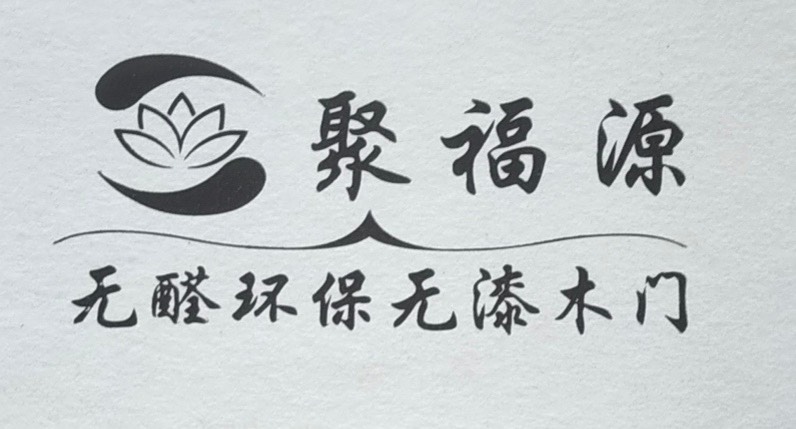 聚福源
无醛环保无漆木门